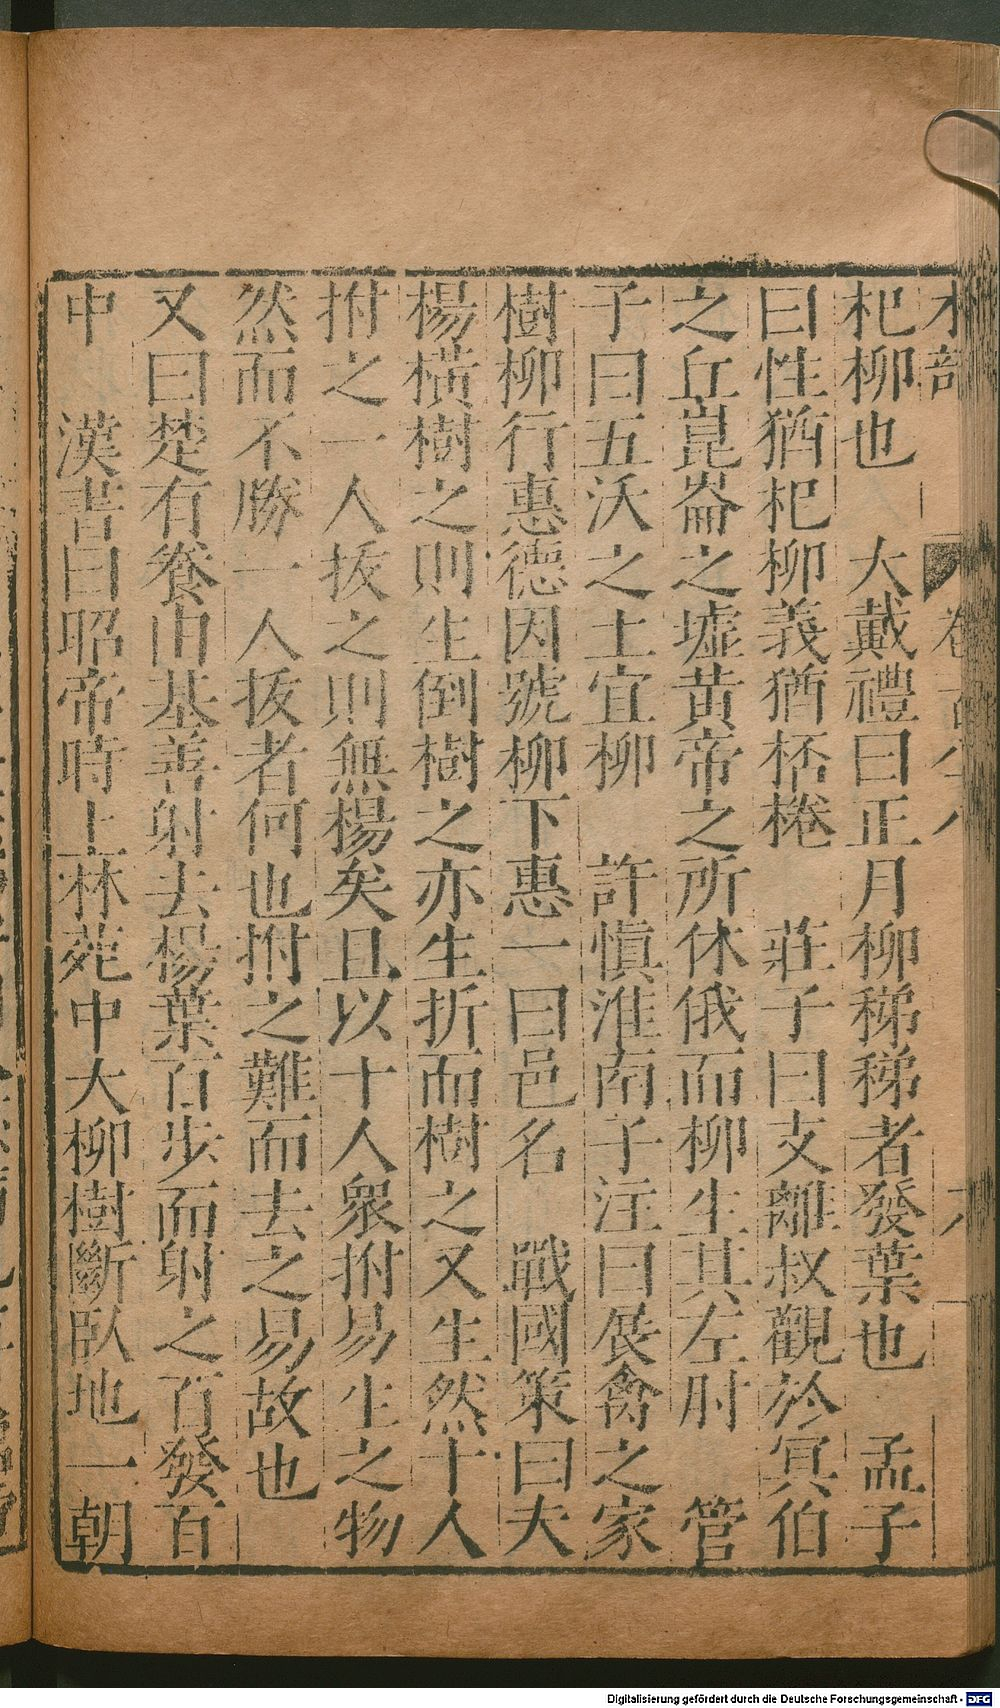 木部
杞柳也　大戴禮曰正月柳稊稊者發葉也　孟子
曰性猶杞柳義猶桮棬　莊子曰支離叔觀於冥伯
之丘崑崙之墟黃帝之所休俄而柳生其左肘　管
子曰五沃之土宜柳　許慎淮南子注曰展禽之家
樹柳行惠德因號柳下惠一曰邑名　戰國策曰夫
楊橫樹之則生倒樹之亦生折而樹之又生然十人
拊之一人拔之則無楊矣且以十人衆拊易生之物
然而不勝一人拔者何也拊之難而去之易故也
又曰楚有養由基善射去楊葉百步而射之百發百
中　漢書曰昭帝時上林苑中大柳樹斷臥地一朝
Digitalisierung gefördert durch die Deutsche Forschungsgemeinschaft - DFG